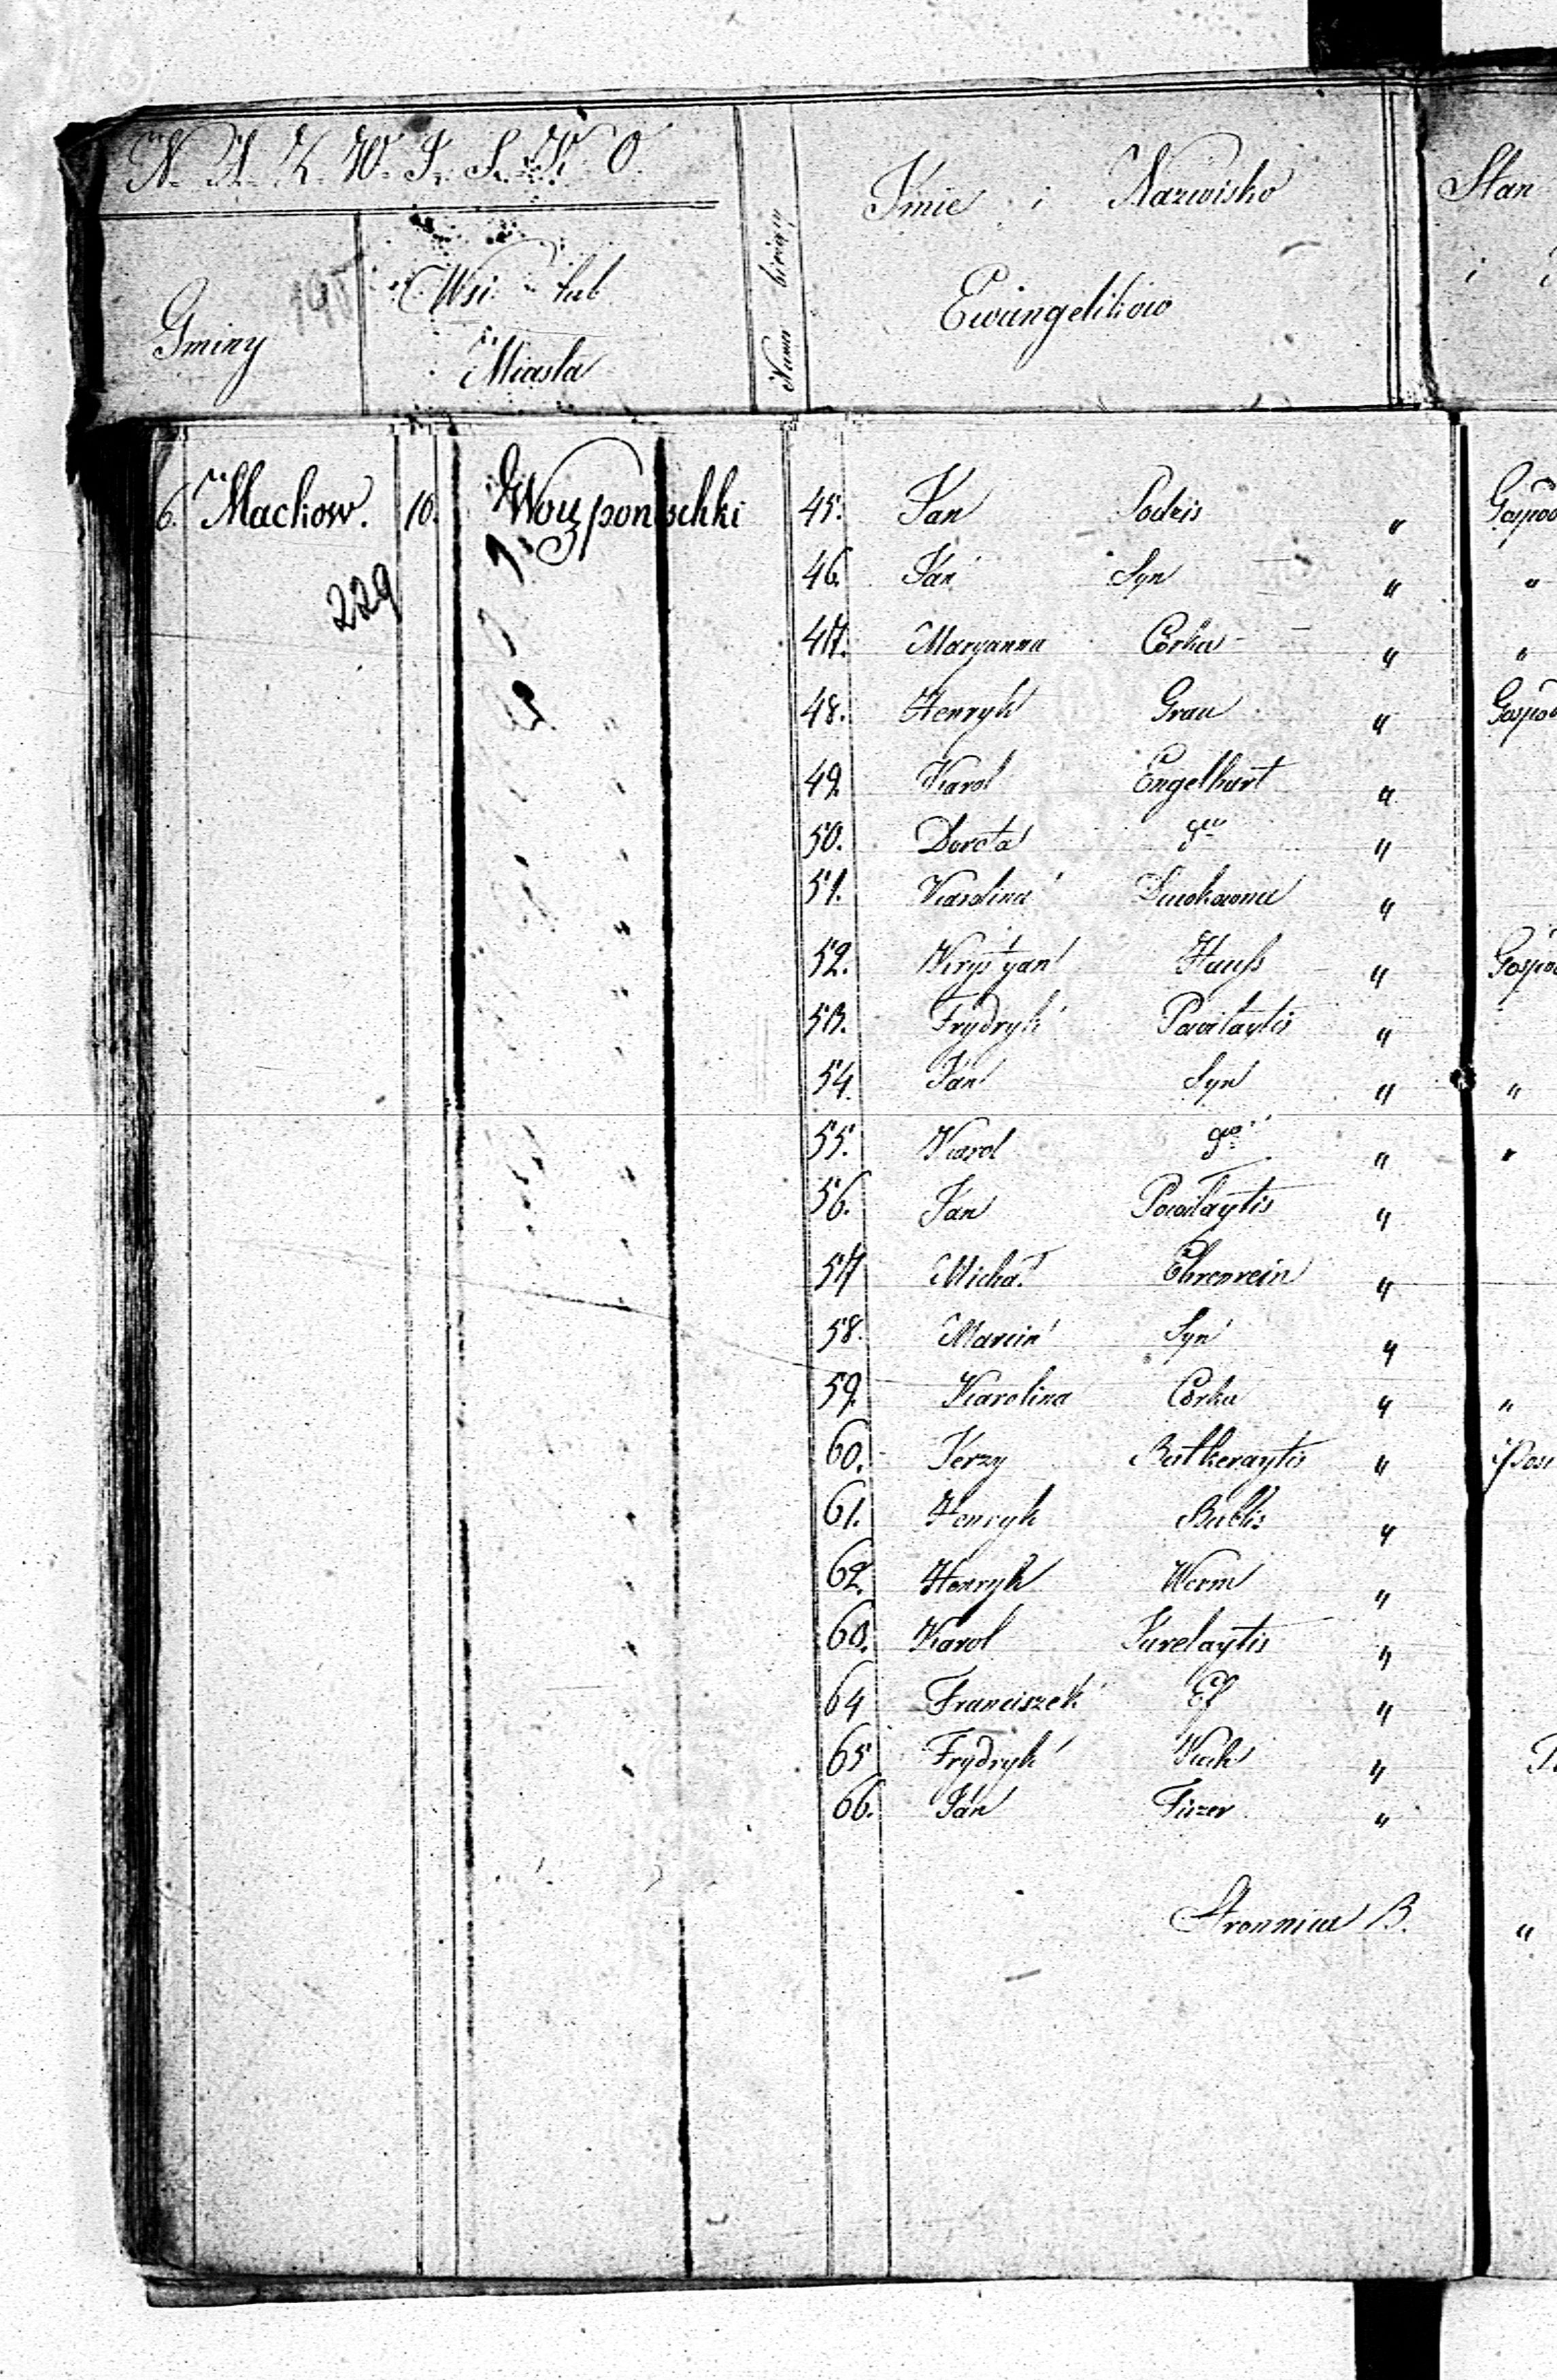 N. A. Z. W. I. S. K. O.
Gminy
195
Wsi lub
Miasta
Numer bieżący
Imie i Nazwisko
Ewangelikow
Stan
i
6. Mackow. 10. 45. Jan " Gospod
229
46. Jan Syn " "
47. Maryanna Corka " "
48. Henryk Grau " Gospod
49. Karol Engelhart "
50. Dorota "
51. Karolina "
52. Krystyan Hauss " Gospod
53. Frydryk Powilaytis "
54. Jan Syn " "
55. Karol " "
56. Jan Powilaytis "
57 Michał Ehrenrein "
58. Marcin Syn "
59. Karolina Corka " "
60. Jerzy Butkeraytis "
61. Henryk Bublis "
62. Henryk Werm "
63. Karol Jurelaytis "
64 Franciszek "
65 Frydryk "
66. Jan Fiszer "
Stronnica B. "